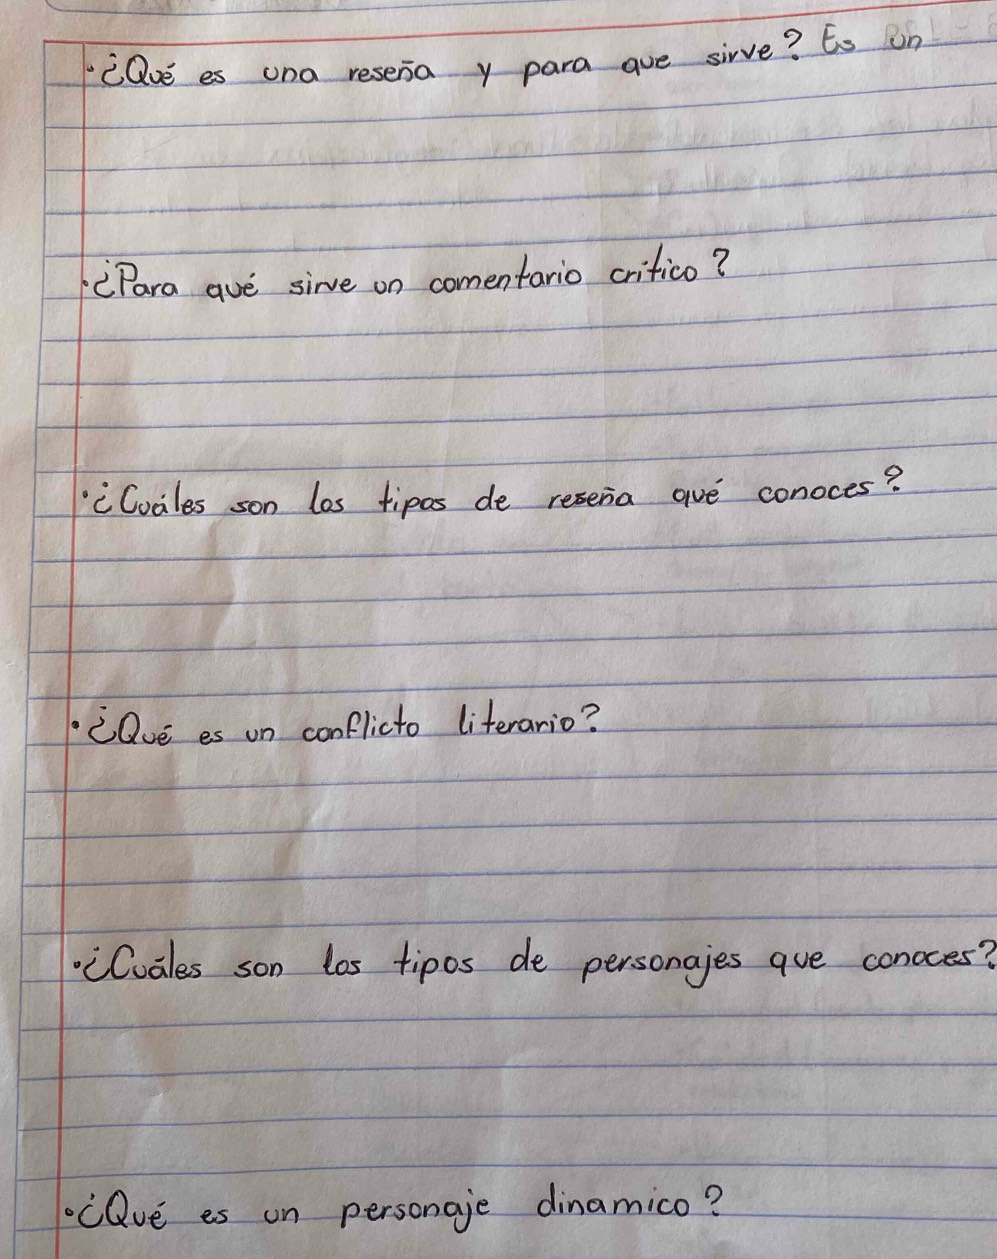 ·¿Qué es una reseña y para que sirve? Es un
·¿Para qué sirve un comentario critico?
·¿Cuáles son los tipos de reseña qué conoces?
·¿Qué es un conflicto literario?
·¿Cuáles son los tipos de personajes que conoces?
·¿Qué es un personaje dinamico?